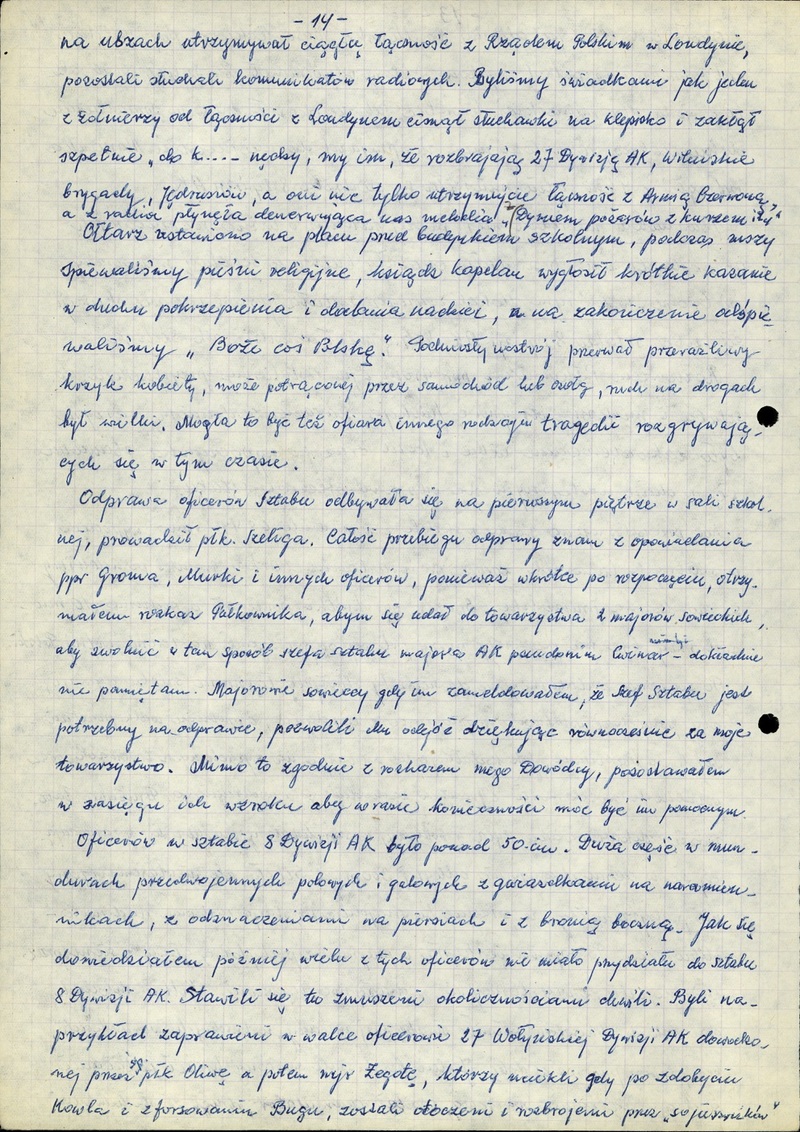 - 14 -
na uszach utrzymywał ciągłą łączność z Rządem Polskim w Londynie,
pozostali słuchali komunikatów radiowych. Byliśmy świadkami jak jeden
z żołnierzy od łączności z Londynem cisnął słuchawki na klepisko i zaklął
szpetnie „do k.... nędzy, my im, że rozbrajają 27 Dywizję AK, Wileńskie
brygady, Jędrusiów, a oni nic tylko utrzymujcie łączność z Armią Czerwoną,"
a z radia płynęła denerwująca nas melodia „Z Dymem pożarów z kurzem itd"
Ołtarz ustawiono na placu przed budynkiem szkolnym, podczas mszy
śpiewaliśmy pieśni religijne, ksiądz kapelan wygłosił krótkie kazanie
w duchu pokrzepienia i dodania nadziei, na zakończenie odśpie-
waliśmy „Boże coś Polskę". Podniosły nastrój przerwał przeraźliwy
krzyk kobiety, może potrąconej przez samochód lub czołg, ruch na drogach
był wielki. Mogła to być też ofiara innego rodzaju tragedii rozgrywają-
cych się w tym czasie.
Odprawa oficerów Sztabu odbywała się na pierwszym piętrze w sali szkol-
nej, prowadził płk. Szeliga. Całość przebiegu odprawy znam z opowiadania
ppr Groma, Murki i innych oficerów, ponieważ wkrótce po rozpoczęciu, otrzy-
małem rozkaz Pułkownika, abym się udał do towarzystwa 2 majorów sowieckich,
aby zwolnić w ten sposób szefa sztabu majora AK pseudonim - dokładnie
nie pamiętam. Majorowie sowieccy gdy im zameldowałem, że Szef Sztabu jest
potrzebny na odprawie, pozwolili Mu odejść dziękując równocześnie za moje
towarzystwo. Mimo to zgodnie z rozkazem mego Dowódcy, pozostawałem
w zasięgu ich wzroku aby w razie konieczności móc być im pomocnym.
Oficerów w sztabie 8 Dywizji AK było ponad 50-ciu. Duża część w mun-
durach przedwojennych polowych i galowych z gwiazdkami na naramien-
nikach, z odznaczeniami na piersiach i z bronią boczną. Jak się
dowiedziałem później wielu z tych oficerów nie miało przydziału do sztabu
8 Dywizji AK. Stawili się tu zmuszeni okolicznościami chwili. Byli na-
przykład zaprawieni w walce oficerowie 27 Wołyńskiej Dywizji AK dowodzo-
nej przez płk Oliwę a potem mjr Żegotę, którzy uciekli gdy po zdobyciu
Kowla i sforsowaniu Bugu, zostali otoczeni i rozbrojeni przez „sojuszników"